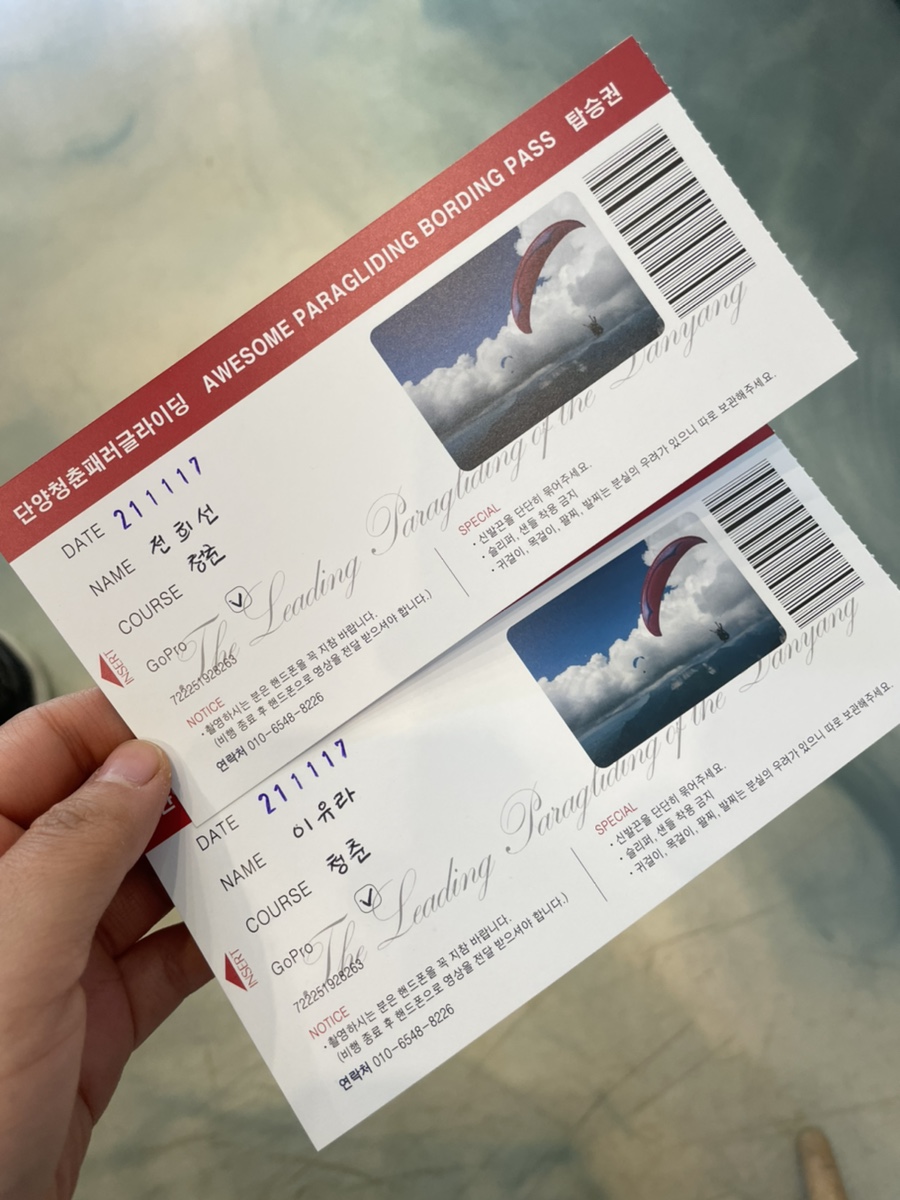 단양청춘패러글라이딩 AWESOME PARAGLIDING BORDING PASS 탑승권
DATE 211117
NAME 전희선
COURSE 청춘
GoPro ✓
The Leading Paragliding of the Danyang
INSERT
722251928263
NOTICE
• 촬영하시는 분은 핸드폰을 꼭 지참 바랍니다.
(비행 종료 후 핸드폰으로 영상을 전달 받으셔야 합니다.)
연락처 010-6548-8226
SPECIAL
• 신발끈을 단단히 묶어주세요.
• 슬리퍼, 샌들 착용 금지
• 귀걸이, 목걸이, 팔찌, 발찌는 분실의 우려가 있으니 따로 보관해주세요.
단
DATE 211117
NAME 이유라
COURSE 청춘
GoPro ✓
The Leading Paragliding of the Danyang
INSERT
722251928263
NOTICE
• 촬영하시는 분은 핸드폰을 꼭 지참 바랍니다.
(비행 종료 후 핸드폰으로 영상을 전달 받으셔야 합니다.)
연락처 010-6548-8226
SPECIAL
• 신발끈을 단단히 묶어주세요.
• 슬리퍼, 샌들 착용 금지
• 귀걸이, 목걸이, 팔찌, 발찌는 분실의 우려가 있으니 따로 보관해주세요.